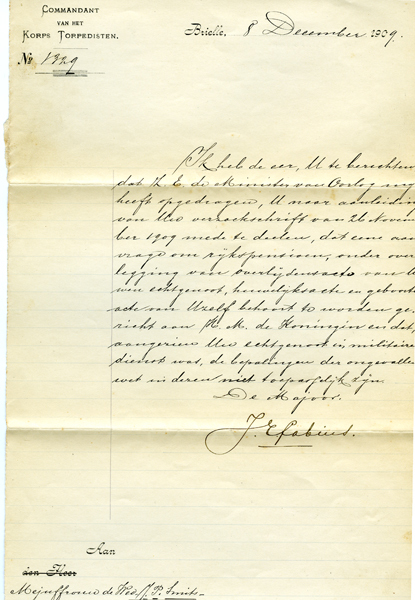 COMMANDANT
VAN HET
KORPS TORPEDISTEN.
No 1329
Brielle, 8 December 1909.
Ik heb de eer, U te berichten
dat Z. E. de Minister van Oorlog mij
heeft opgedragen, U naar aanleiding
van Uw verzoekschrift van 26 Novem
ber 1909 mede te deelen, dat eene aan
vrage om rijkspensioen, onder over
legging van overlijdensacte van U
wen echtgenoot, huwelijksacte en geboort
acte van Uzelf behoort te worden ge
richt aan H. M. de Koningin en dat,
aangezien Uw echtgenoot in militaire
dienst was, de bepalingen der ongevallen
wet in deren niet toepasselijk zijn.
De Majoor.
J. E. Fabius.
Aan
den Heer
Mejuffrouw de Wed. J. P. Smits